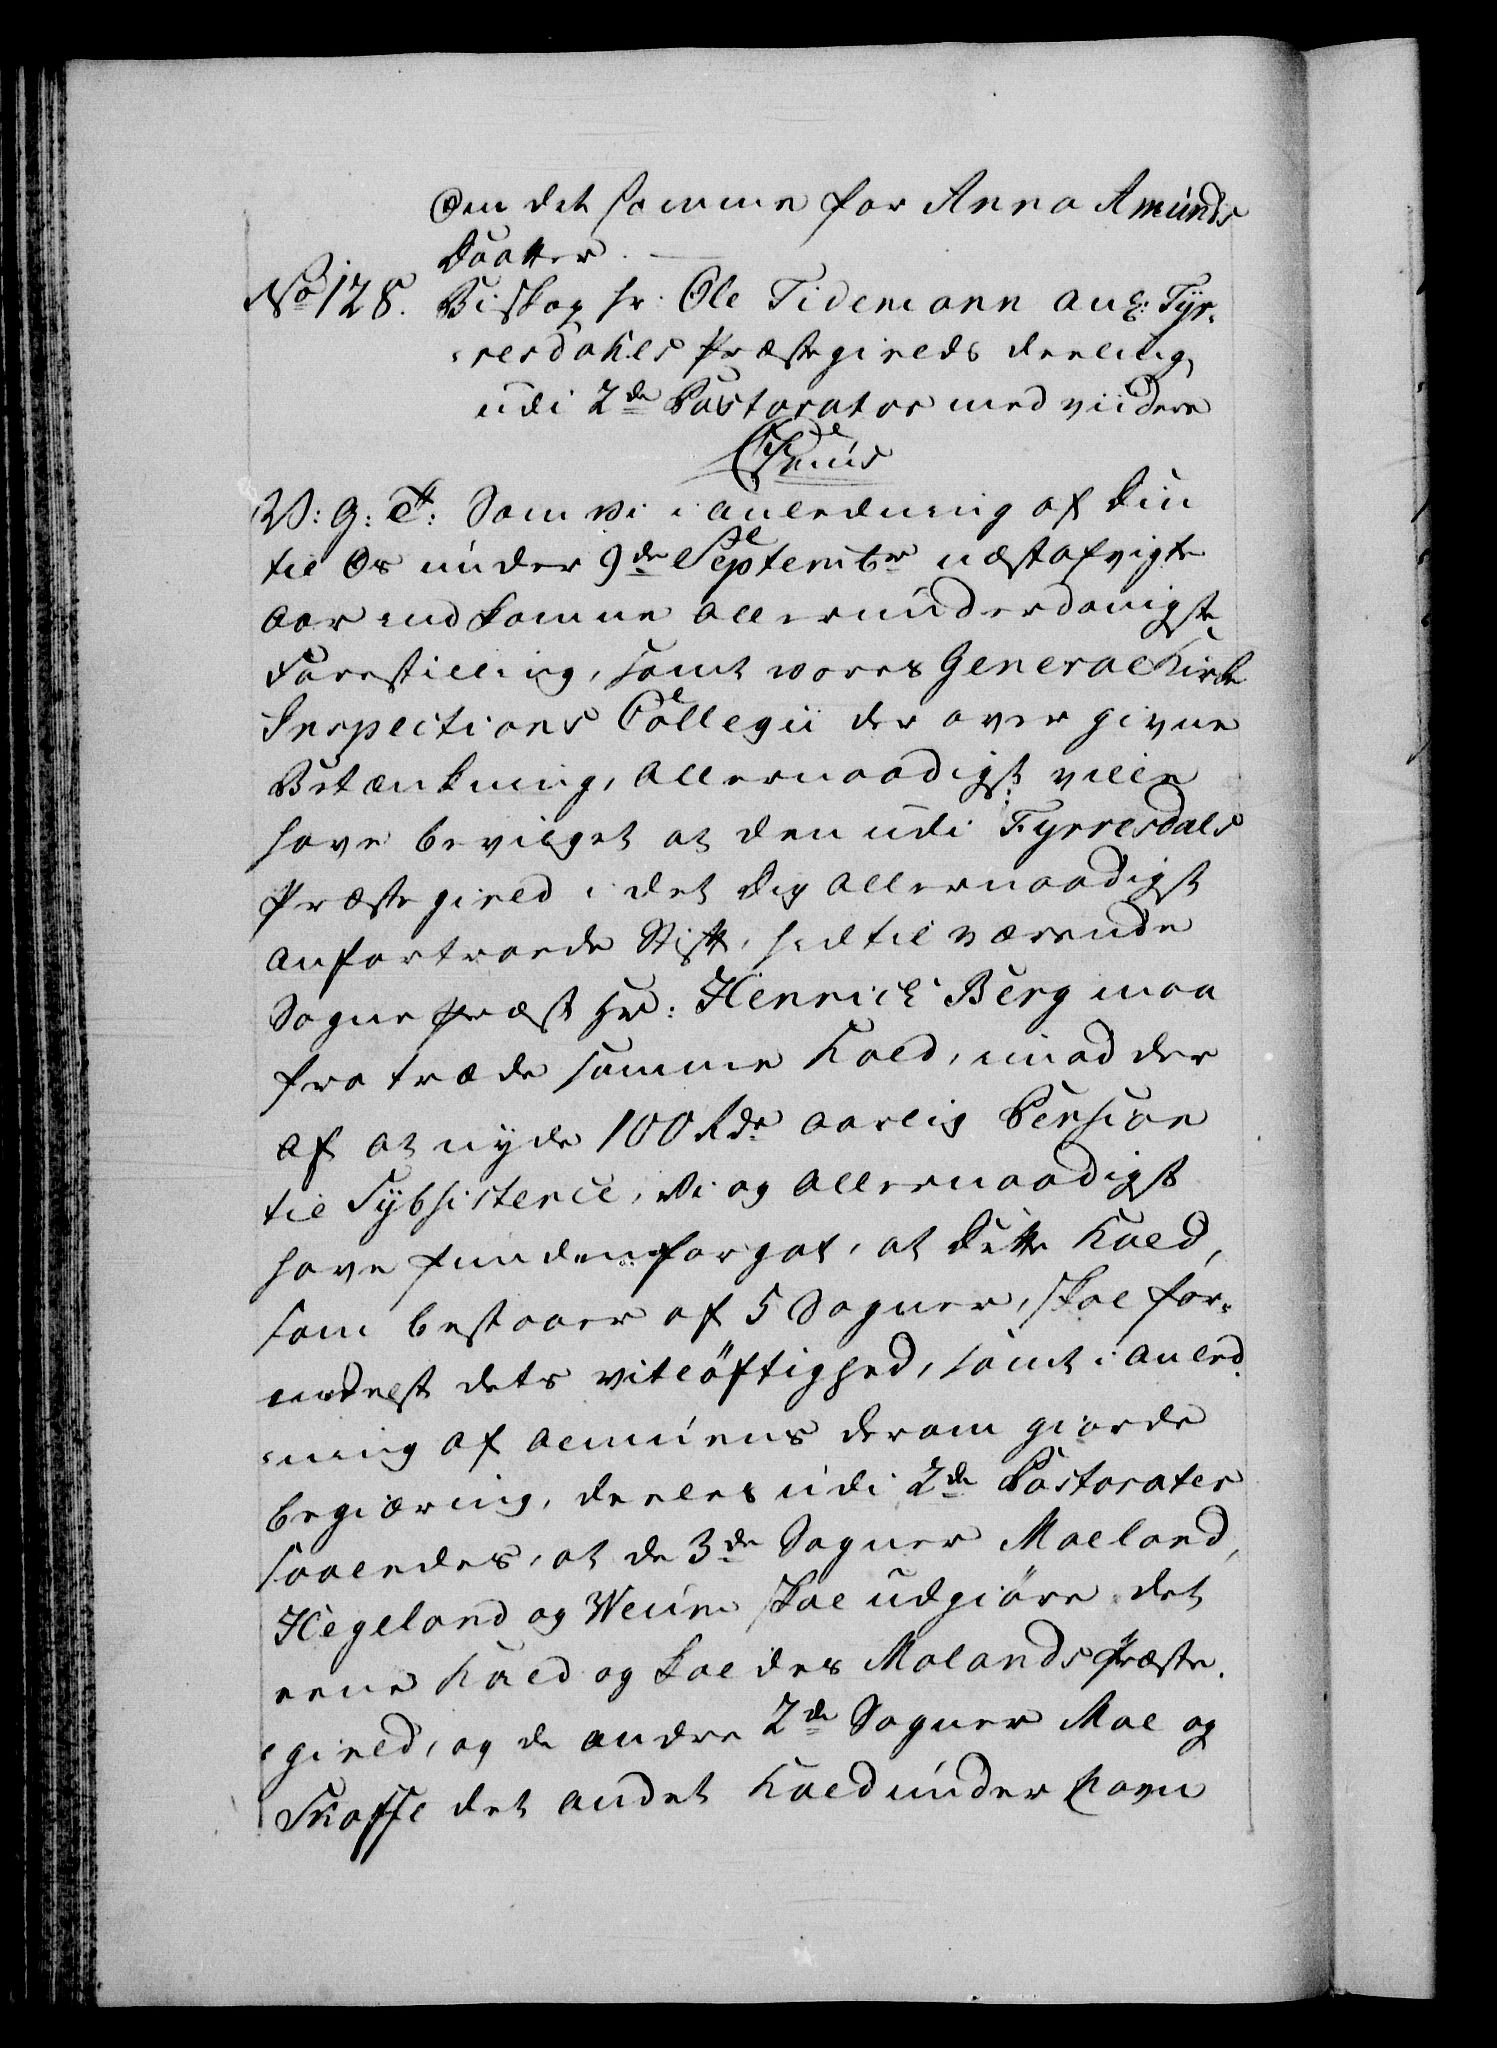 Om det samme for Anna Amunds
Daatter.
No 128. Biskop hr: Ole Tidemann ang: Tyr-
-resdahls Præstegields deeling,
udi 2de Pastorater med viidere
V: G: T: Som Vi i anledning af Din
til Os under 9de Septembr næstafvigte
Aar indkomne allerunderdanigste
Forestilling, samt vores General Kirke
Inspections Collegii der over givne
Betænkning, allernaadigst ville
have bevilget at den udi Tyrresdals
Præstegield i det dig allernaadigst
anfortroede Stift, hidtil værende
Sogne præst Hr: Henrich Berg maa
fratræde samme Kald, imod der
af at nyde 100 Rdr aarlig Pension
til Sybsistence, Vi og allernaadigst
have funden for got, at dette Kald,
som bestaaer af 5 Sogner, skal for-
medelst dets vitløftighed, samt i anled-
-ning af Almuens derom giorde
begiæring, deeles udi 2de Pastorater
saaledes, at de 3de Sogner Maeland,
Hegeland og Weum skal udgiøre det
eene Kald og kaldes Molands Præste-
-gield, og de andre 2de Sogner Moe og
Skaffse det andet Kald under Navn